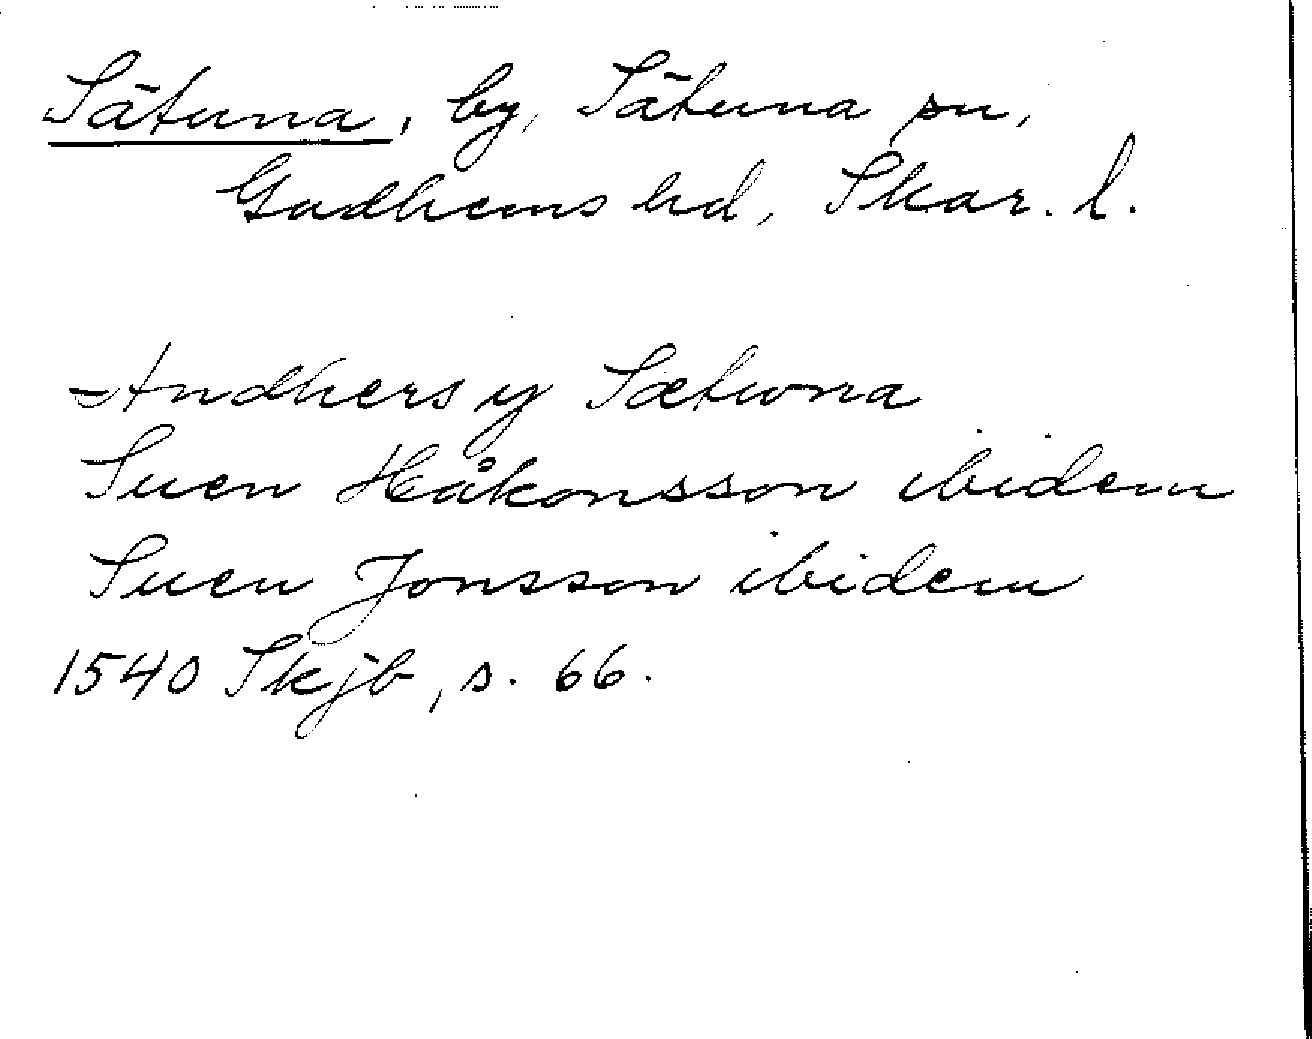 Sätuna, by, Sätuna sn,
Gudhems hd, Skar. l.
Andhers y Sætwna
Suen Håkonsson ibidem
Suen Jonsson ibidem
1540 Skjb, s. 66.